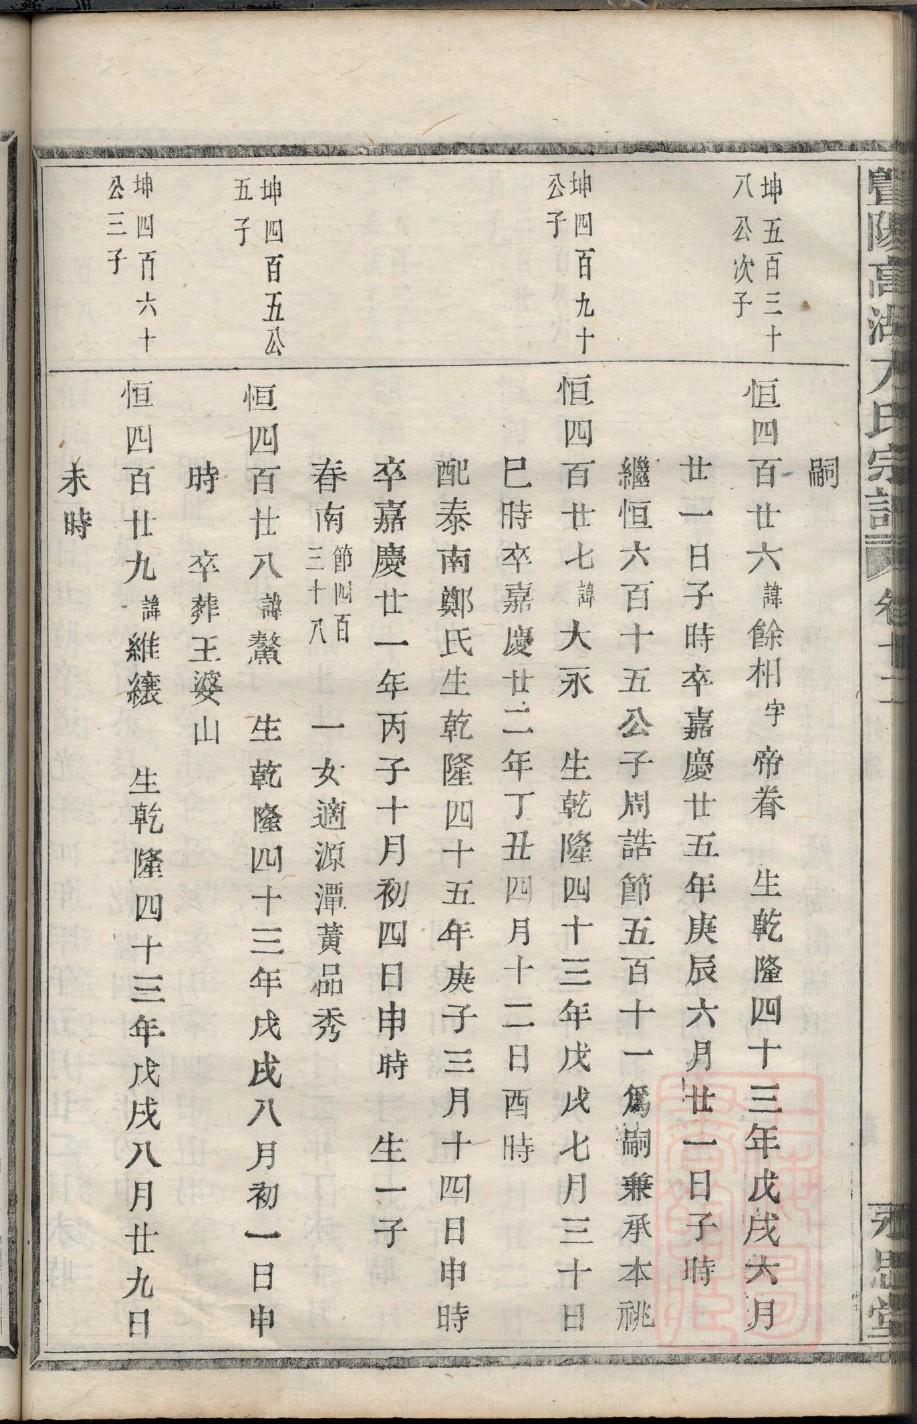 暨陽高湖方氏宗譜 卷十二 永思堂
嗣
坤五百三十
八公次子
恒四百廿六諱餘相字帝眷 生乾隆四十三年戊戌六月
廿一日子時卒嘉慶廿五年庚辰六月廿一日子時
繼恒六百十五公子周誥節五百十一爲嗣兼承本祧
坤四百九十
公子
恒四百廿七諱大永 生乾隆四十三年戊戌七月三十日
巳時卒嘉慶廿二年丁丑四月十二日酉時
配泰南鄭氏生乾隆四十五年庚子三月十四日申時
卒嘉慶廿一年丙子十月初四日申時 生一子
春南節四百三十八 一女適源潭黃品秀
坤四百五公
五子
恒四百廿八諱鰲 生乾隆四十三年戊戌八月初一日申
時 卒葬王婆山
坤四百六十
公三子
恒四百廿九諱維纕 生乾隆四十三年戊戌八月廿九日
未時